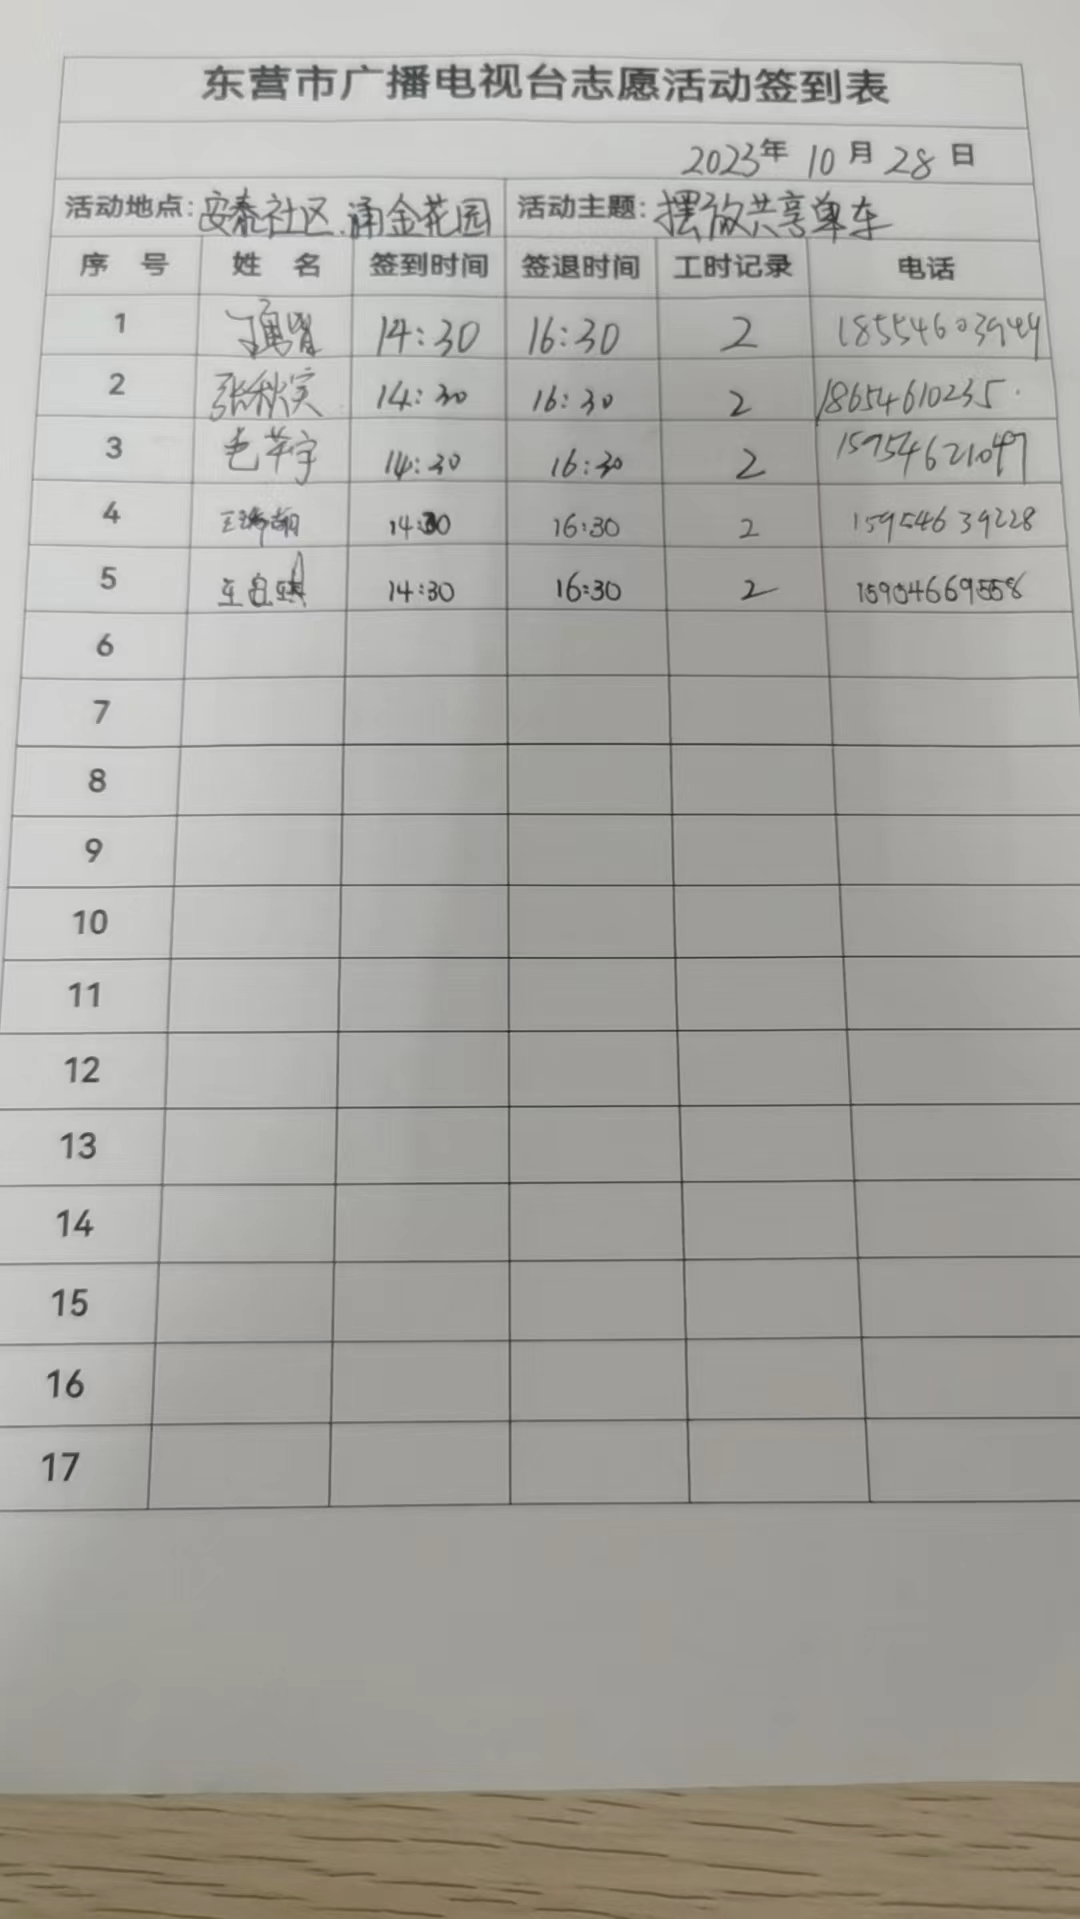 东营市广播电视台志愿活动签到表
2023年 10月 28日
活动地点:安泰社区.涌金花园 活动主题:摆放共享单车
序 号 姓 名 签到时间 签退时间 工时记录 电话
1 14:30 16:30 2 18554603944
2 张秋滨 14:30 16:30 2 18654610235
3 毛苹宇 14:30 16:30 2 15754621047
4 14:30 16:30 2 15954639228
5 14:30 16:30 2 15954669558
6
7
8
9
10
11
12
13
14
15
16
17